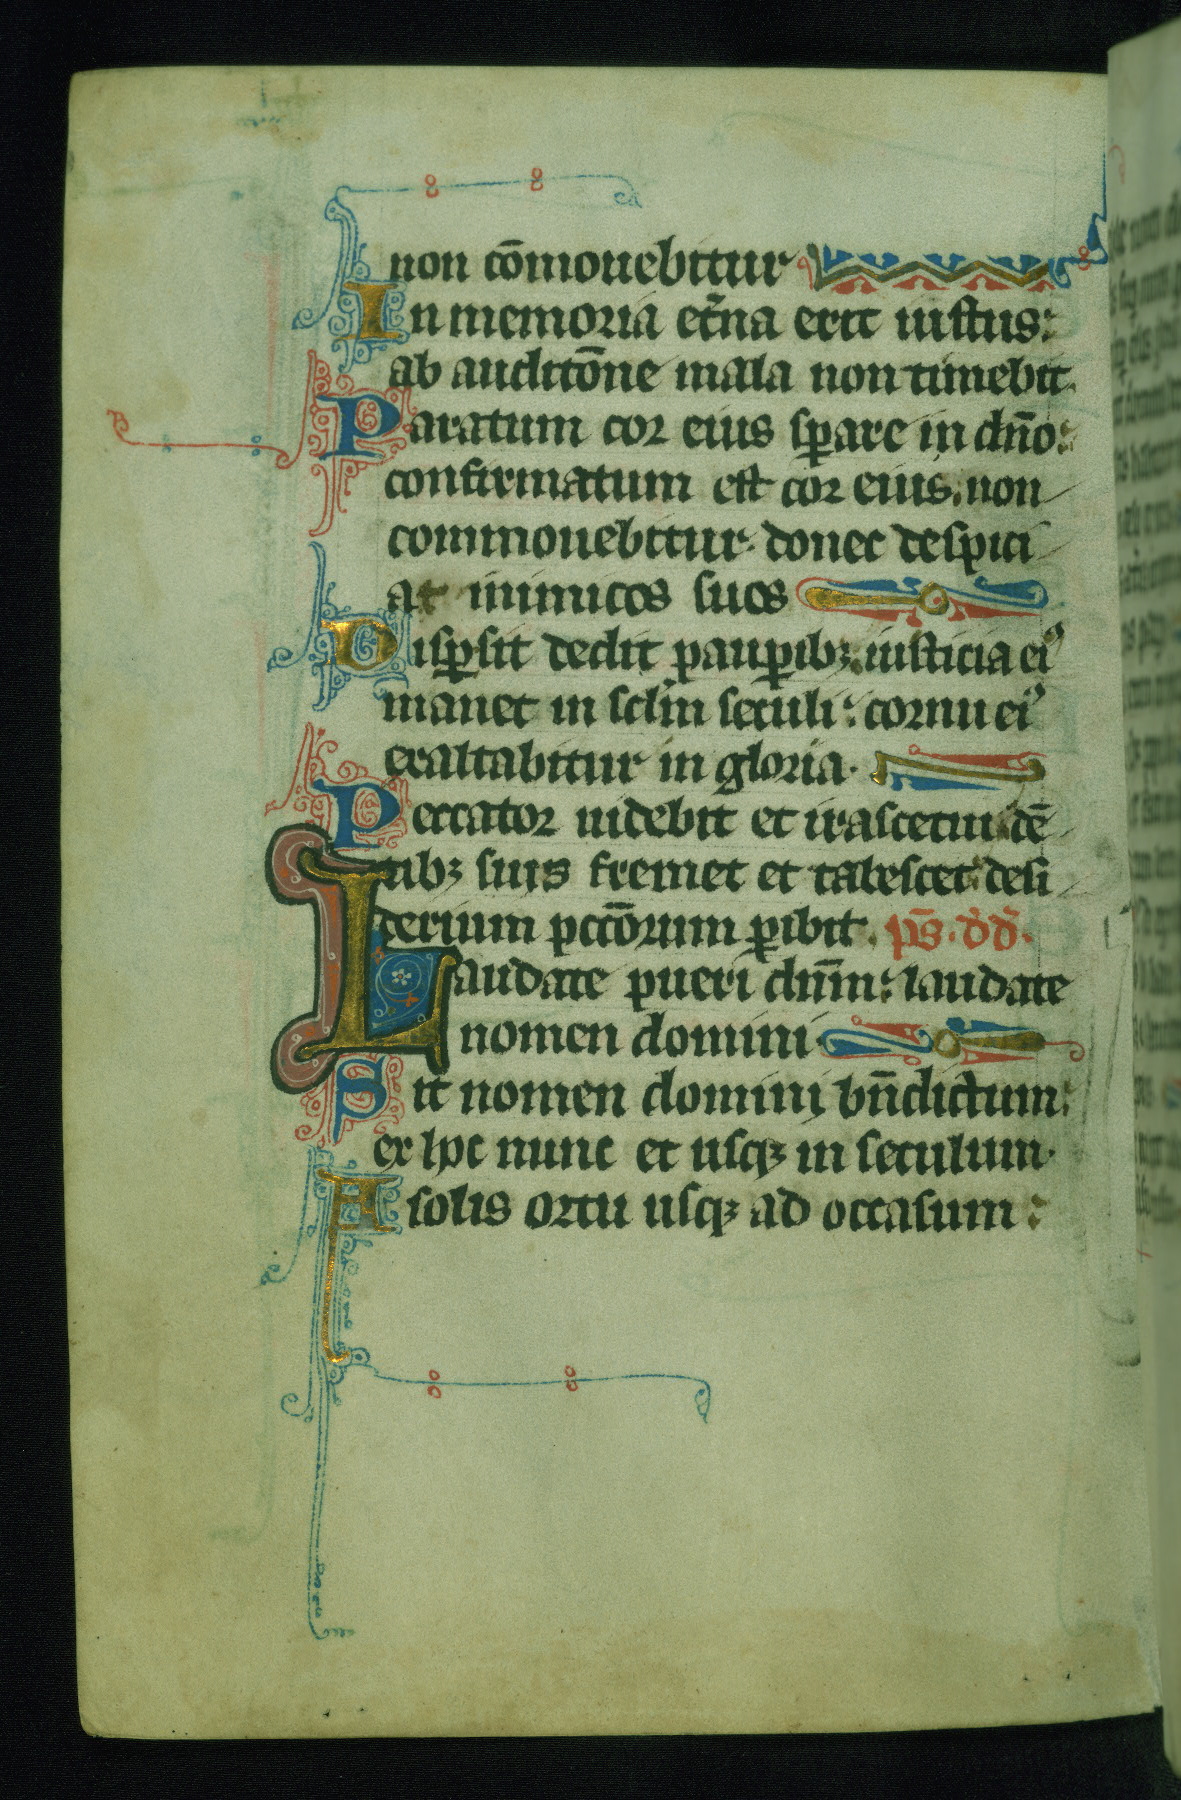 non cōmouebitur
In memoria et̄na erit iustus:
ab auditōne mala non timebit.
Paratum cor eius sꝑare in dn̄o:
confirmatum est cor eius. non
commouebitur donec despici
at inimicos suos
Disꝑsit dedit pauꝑibꝫ iusticia eiꝰ
manet in sclm̄ seculi: cornu eiꝰ
exaltabitur in gloria.
Peccator uidebit et irascetur dē
tibꝫ suis fremet et tabescet: desi
derium pccōrum ꝑibit. ps̄. dd̄.
Laudate pueri dn̄m: laudate
nomen domini
Sit nomen domini bn̄dictum:
ex hoc nunc et usqꝫ in seculum.
A solis ortu usqꝫ ad occasum: